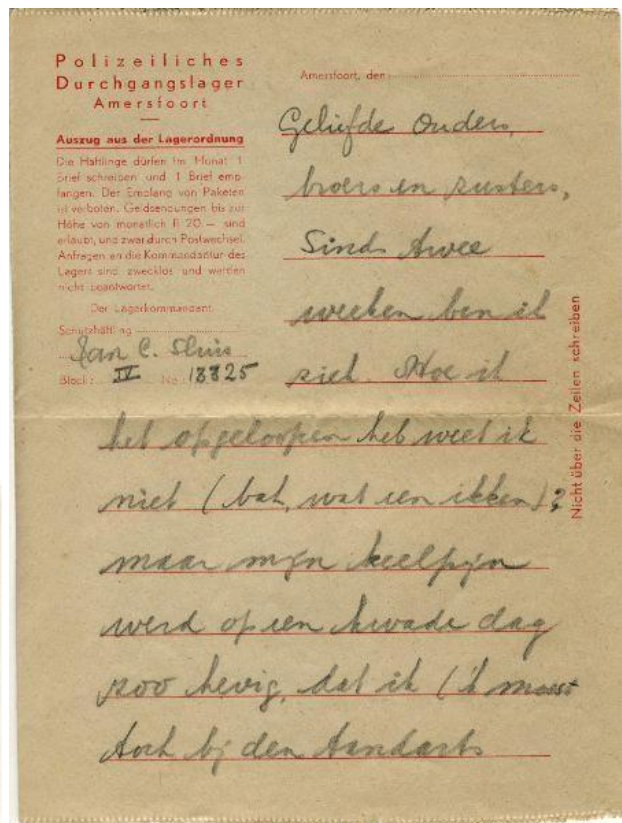 Polizeiliches
Durchgangslager
Amersfoort
Auszug aus der Lagerordnung
Die Häftlinge dürfen im Monat 1
Brief schreiben und 1 Brief emp-
fangen. Der Empfang von Paketen
ist verboten. Geldsendungen bis zur
Höhe von monatlich fl 20.— sind
erlaubt, und zwar durch Postwechsel.
Anfragen an die Kommandantur des
Lagers sind zwecklos und werden
nicht beantwortet.
Der Lagerkommandant.
Schutzhäftling
Jan C. Sluis
Block: IV No: 13325
Amersfoort, den
Geliefde Ouders,
broers en zusters,
Sinds twee
weeken ben ik
ziek. Hoe ik
het opgeloopen heb weet ik
niet (bah, wat een ikken)?
maar mijn keelpijn
werd op een kwade dag
zoo hevig, dat ik ('k moest
toch bij den tandarts
Nicht über die Zeilen schreiben